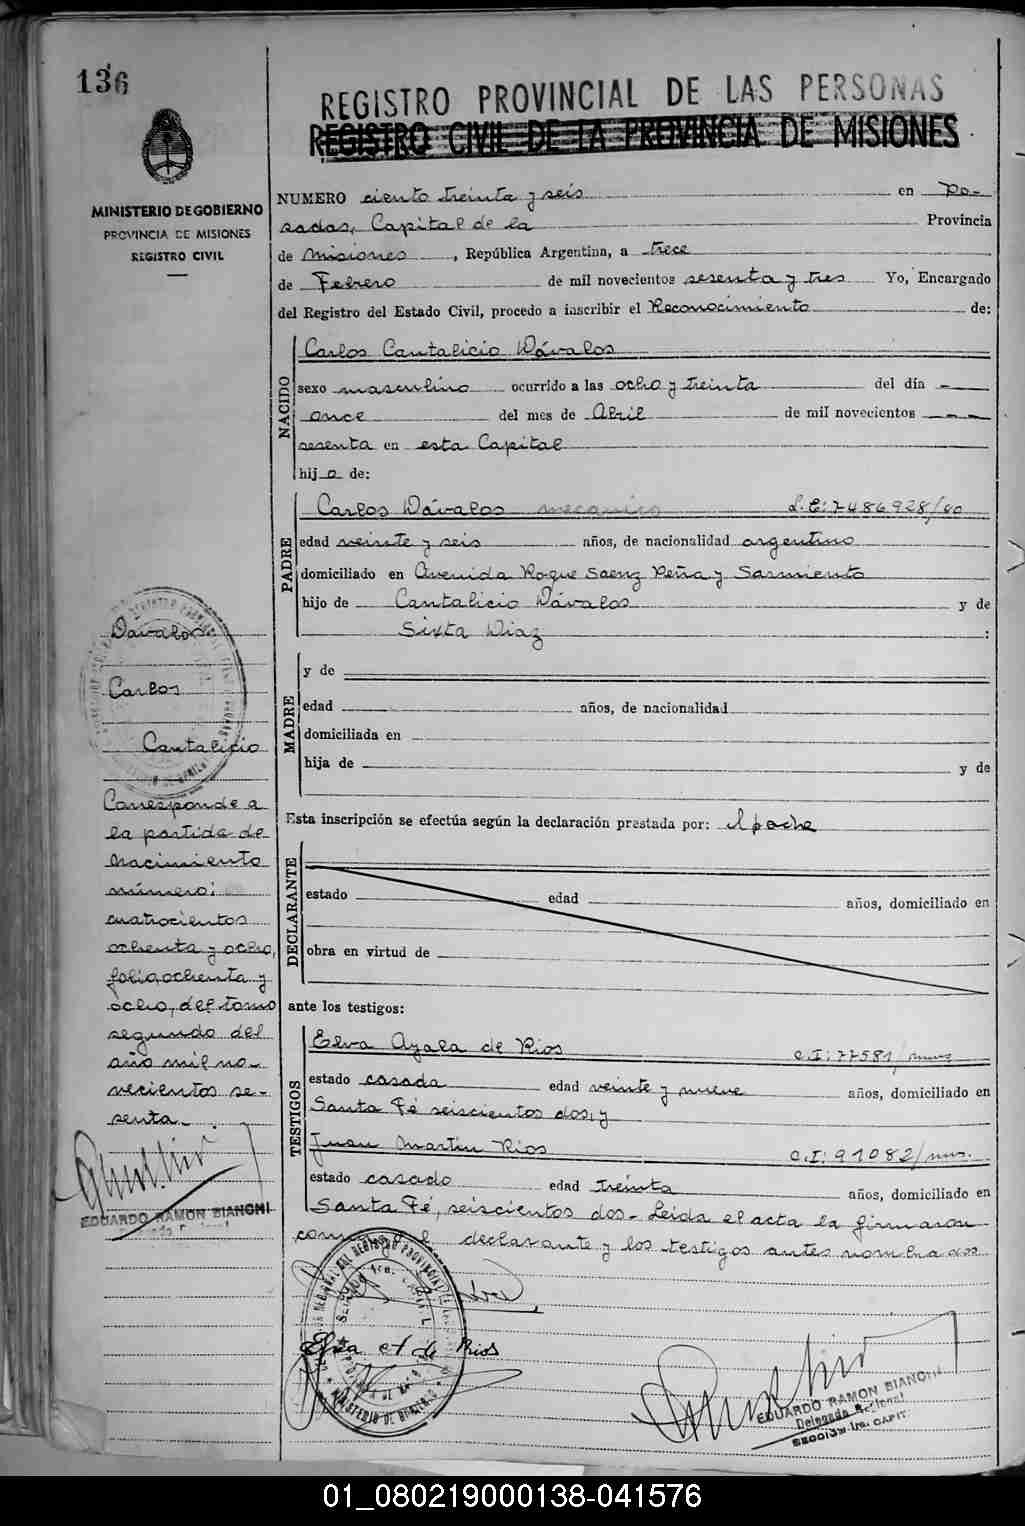 136
MINISTERIO DE GOBIERNO
PROVINCIA DE MISIONES
REGISTRO CIVIL
REGISTRO PROVINCIAL DE LAS PERSONAS
REGISTRO CIVIL DE LA PROVINCIA DE MISIONES
NUMERO ciento treinta y seis en Po-
sadas, Capital de la Provincia
de Misiones, República Argentina, a trece
de Febrero de mil novecientos sesenta y tres Yo, Encargado
del Registro del Estado Civil, procedo a inscribir el Reconocimiento de:
NACIDO
Carlos Cantalicio Dávalos
sexo masculino ocurrido a las ocho y treinta del día -
once del mes de Abril de mil novecientos - - -
sesenta en esta Capital
hijo de:
PADRE
Carlos Dávalos mecanico L.E: 7486928/40
edad veinte y seis años, de nacionalidad argentino
domiciliado en Avenida Roque Saenz Peña y Sarmiento
hijo de Cantalicio Dávalos y de
Sixta Diaz :
MADRE
y de
edad años, de nacionalidad
domiciliada en
hija de y de
Esta inscripción se efectúa según la declaración prestada por: el padre
DECLARANTE
estado edad años, domiciliado en
obra en virtud de
ante los testigos:
TESTIGOS
Elva Ayala de Rios C.I: 77581/mnes
estado casada edad veinte y nueve años, domiciliado en
Santa Fé seiscientos dos, y
Juan Martin Rios C.I: 91082/mns.
estado casado edad treinta años, domiciliado en
Santa Fé, seiscientos dos - Leida el acta la firmaron
declarante y los testigos antes nombrados
Elva A de Rios
EDUARDO RAMON BIANCHI
Delegado
Davalos
Carlos
Cantalicio
Corresponde a
la partida de
nacimiento
número:
cuatrocientos
ochenta y ocho,
folio ochenta y
ocho, del tomo
segundo del
año mil no-
vecientos se-
senta.
EDUARDO RAMON BIANCHI
01_080219000138-041576